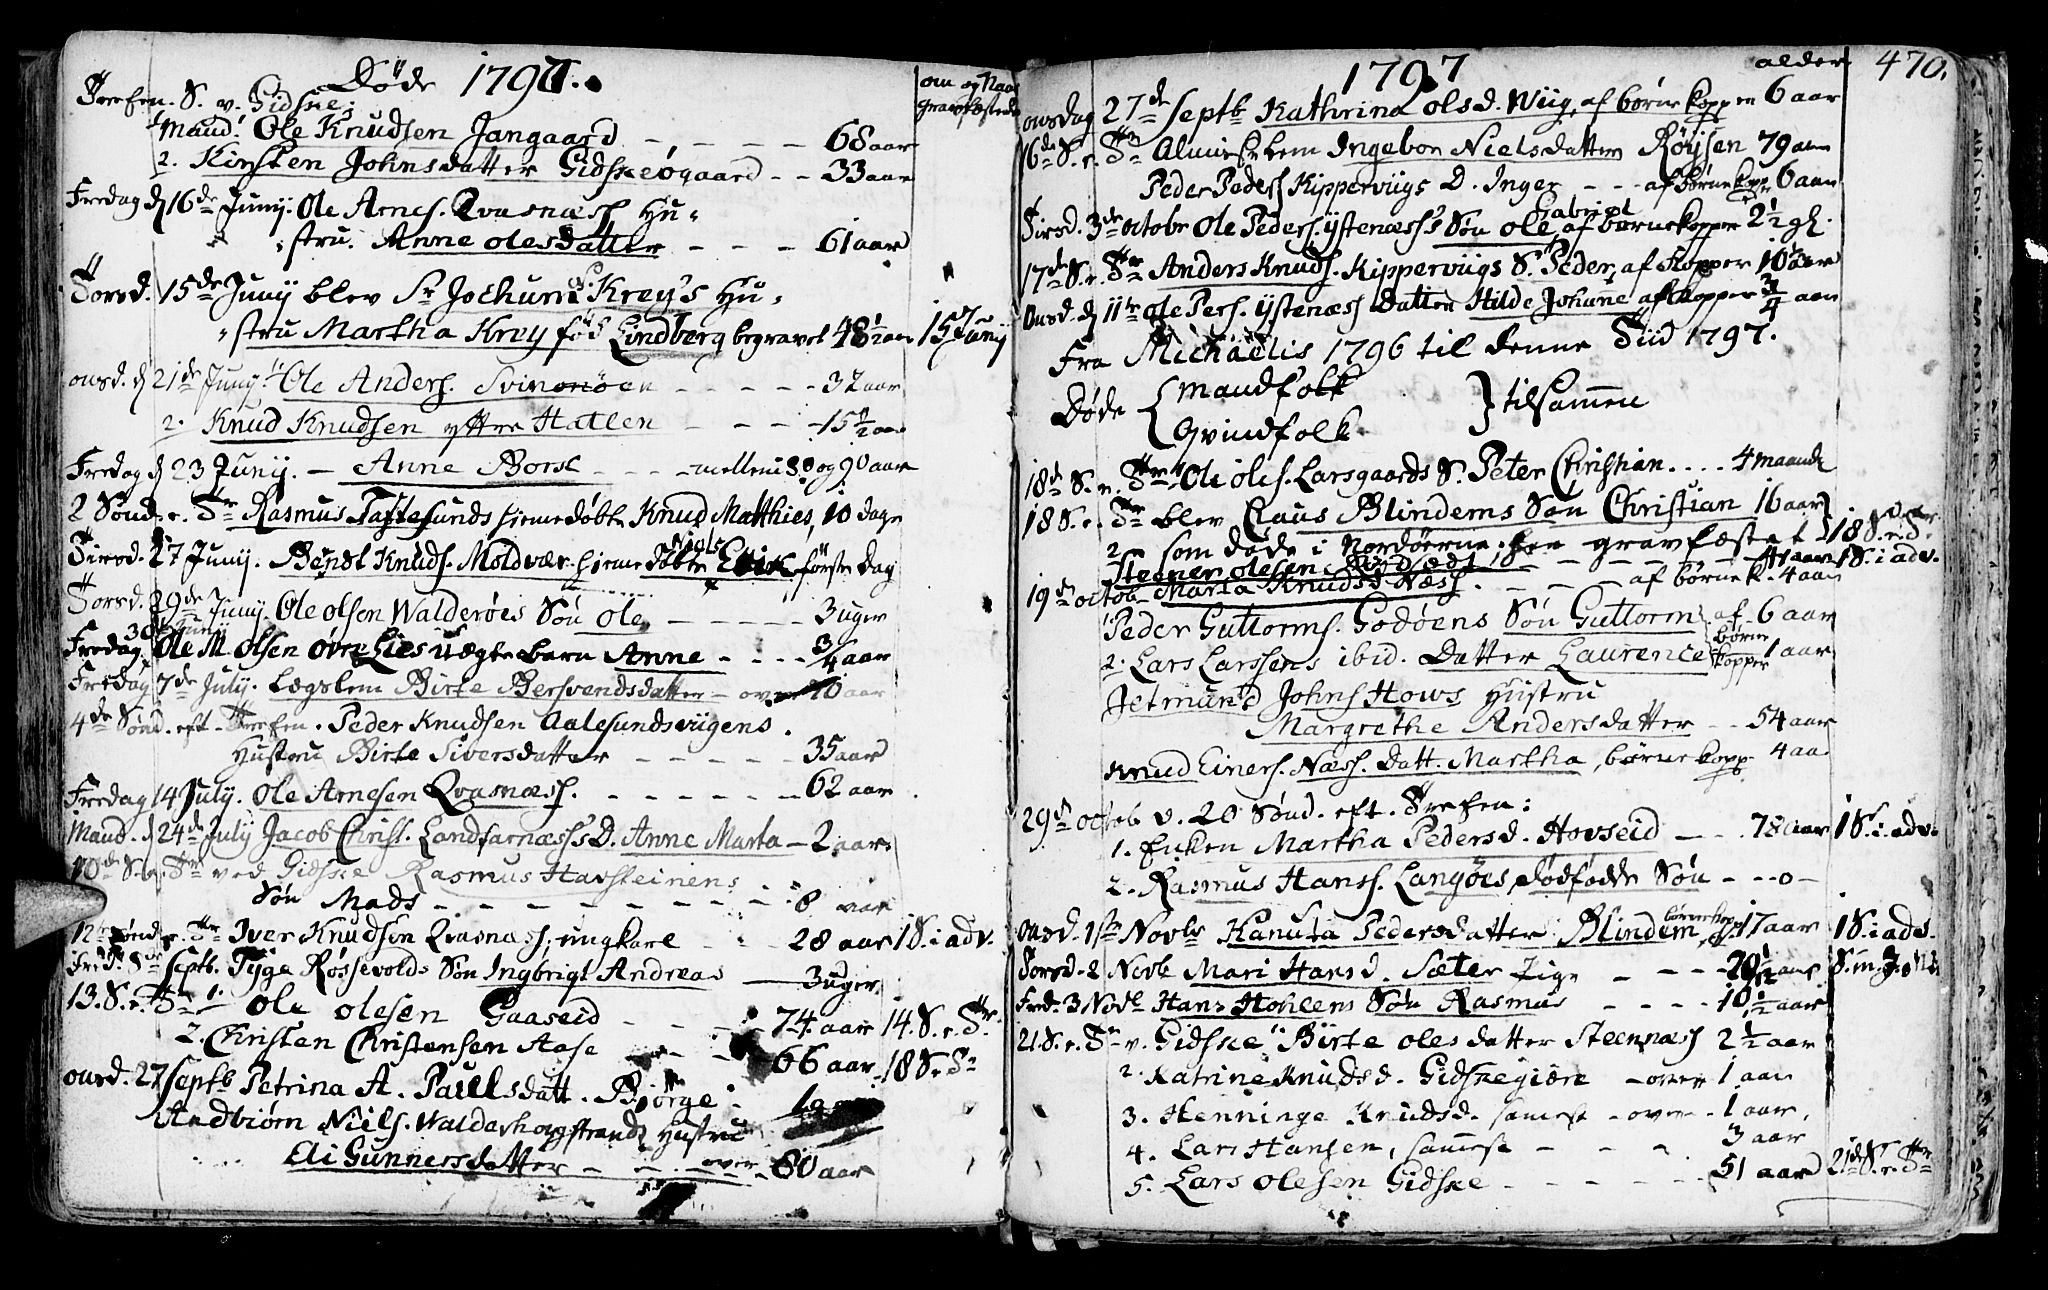 Døde 1797.
om og Naar
gravfæstede
Trefen. S. v. Gidske:
1 Mand: Ole Knudsen Jangaard - - - - 68 aar
2. Kirsten Johnsdatter Gidskeøgaard - - 33 aar
Fredag d 16de Junij. Ole Arnes. Qvasnæss Hu-
stru. Anne olesdatter - - - 61 aar
Torsd. 15de Junij blev Sr Jochum Kreys Hu-
stru Martha Krey fød Lindberg begravet 48 1/2 aar 15 Junij
onsd. d 21de Junij. Ole Anders. Svinenöen - - - - 32 aar
2. Knud Knudsen yttre Hatlen - - - - 15 1/2 aar
Fredag d 23 Junij. - Anne Borse - - - mellem 80 og 90 aar
2 Sønd. e. Tr Rasmus Taftesunds hiemedøbte Knud Matthies, 10 dage
Tirsd. 27 Junij. Bendt Knuds. Moldvær hieme døbte Niels Erick første dag
Torsd. 29de Junij. Ole olsen Walderøes Søn Ole - - - - - 3 uger
30 Junij
Fredag Ole M. Olsen øvre Lies uægte barn Anne - - - 3/4 aar
Fredag 7de July. Lægslem Birte Bersvendsdatter - over 70 aar
4de Sønd. eft. Trefen. Peder Knudsen Aalesundsviigens
Hustru Birte Siversdatter - - - - - 35 aar
Fredag 14 July. Ole Arnesen Qvasnæss. - - - - - - 62 aar
Mand. d 24de July Jacob Christ. Landfarnæss D. Anne Marta - 2 aar
10de S. e. Tr ved Gidske Rasmus Harsteinens
Søn Mads - - - - - - - - 8 aar
12te Sønd. e. Tr Iver Knudsen Qvasnæss, ungkarl - - 28 aar 1 S. i adv.
Fred. 8de Septb. Tyge Røssevolds Søn Ingbrigt Andreas - 3 uger
13. S. e. Tr 1. Ole olesen Gaaseid - - - - 74 aar 14. S. e. Tr.
2. Christen Christensen Aase - - - 66 aar 18 S. e. Tr
onsd. 27 Septb Petrina A. Paulsdatt. Biørge -
Andbiørn Niels. Walderhougstrands Hustru
Eli Gunnersdatter - - - over - 80 aar
1797 alder 470.
onsdag 27de Septb Kathrina olsd. Wiig, af børnekoppen 6 aar
16de S. e. Tr Almisselem Ingebor Nielsdatter Røysen 79 aar
Peder Peders Kipperviigs D. Inger - - - af børnekopp 6 aar
Tirsd. 3de octobr Ole Peders. ystenæss's Søn ole Gabriel af børnekopper 2 1/2 gl.
17de S. e. Tr Anders Knuds. Kipperviigs S. Peder, af Kopper 10 aar
Onsd. d 11te ole Pers. ystenæss Datter Hilde Johane af Kopper 3/4 aar
Fra Michaëlis 1796 til denne Tiid 1797.
Døde { Mandfolk } tilsammen
Qvindfolk
18de S. e. Tr Ole oles. Larsgaards S. Peter Christian.... 4 maaneder
18 S. e. Tr blev Claus Blindems Søn Christian 16 aar
som døde i Nordøerne, her gravfæstet 18 S. e. Tr
Steener olesen - - - aar 1 S. i adv.
19de octob. Marta Knudsd Næss. - - - af børnek. 4 aar
Peder Guttorms. Godøens Søn Guttorm af 6 aar
børnekopper
2. Lars Larssens ibid. Datter Laurence 1 aar
Jetmund Johns Hows Hustru
Margrethe Andersdatter - - 54 aar
Knud Einers. Næss. Datt. Martha, børnekopp. 4 aar
29de octob v. 20 Sønd. eft. Trefen:
1. Enken Martha Pedersd. Hovseid - - . 78 aar 1 S. i adv.
2. Rasmus Hanss. Langøes, dødfødde Søn - - - 0 -
onsd. 1ste Novbr Hanusa Pedersdatter Blindem børnekop. 17 aar 1 S. i adv.
Torsd. 2 Novb Mari Hansd. Sæter Pige - - - - 20 1/2 aar
Fred. 3 Novb Hans Hohlens Søn Rasmus - - - - 10 1/2 aar
21. S. e. Tr v. Gidske 1 Birte olesdatter Steennæss 2 1/2 aar
2. Katrine Knudsd. Gidskegiære - over 1 aar
3. Henninge Knudsd. samest - over - 1 aar,
4. Lars Hansen, samest - - - - 3 aar
5. Lars olesen Gidske - - - - - 51 aar 21de S. e. Tr